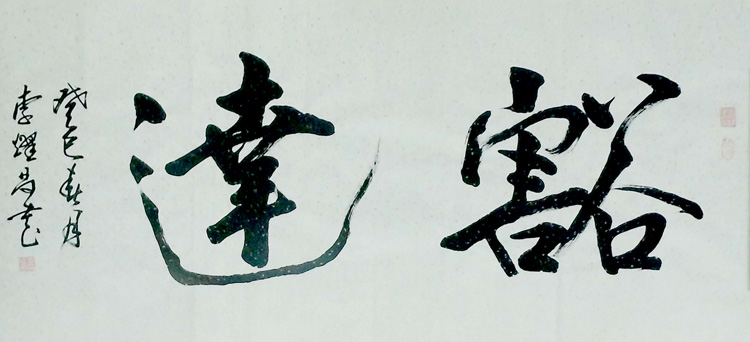 豁達
癸巳春月
李耀昌書